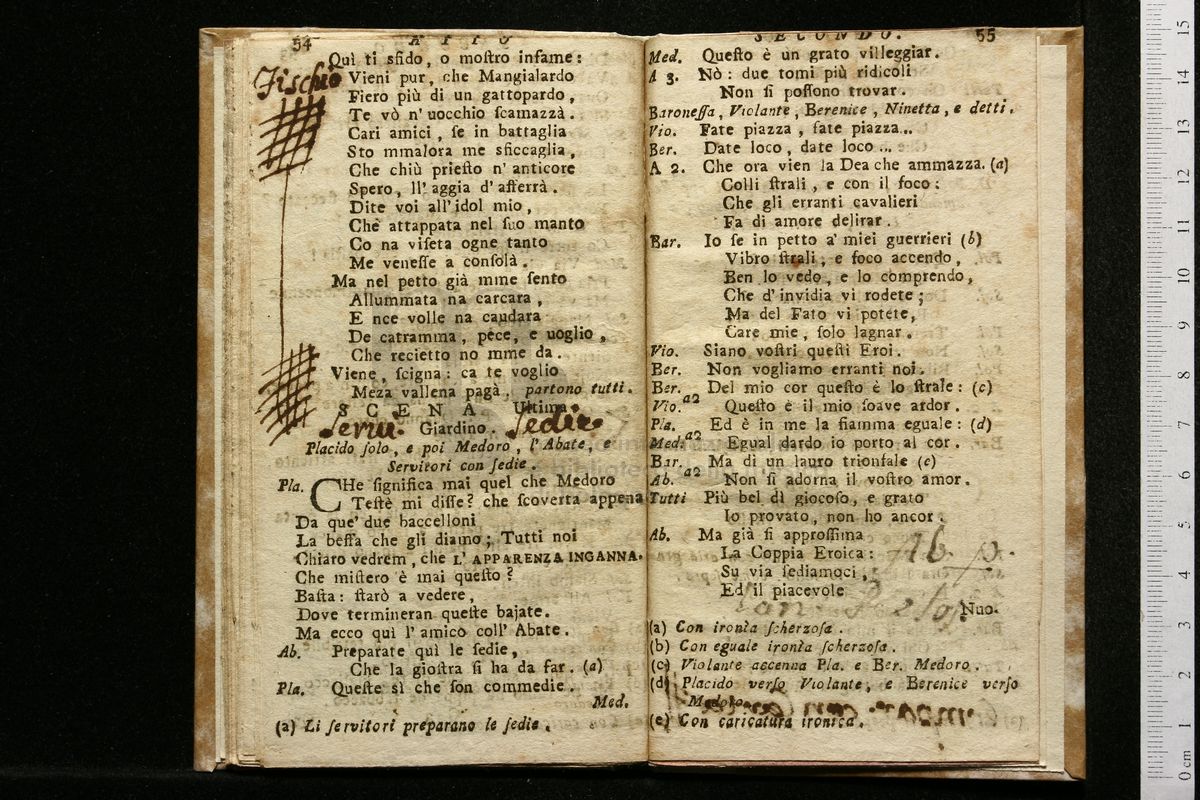 54 ATTO
Quì ti sfido, o moſtro infame:
Fischio
Vieni pur, che Mangialardo
Fiero più di un gattopardo,
Te vò n' uocchio ſcamazzà.
Cari amici, ſe in battaglia
Sto mmalora me ſficcaglia,
Che chiù prieſto n' anticore
Spero, ll' aggia d' afferrà.
Dite voi all' idol mio,
Chè attappata nel ſuo manto
Co na viſeta ogne tanto
Me veneſſe a conſolà.
Ma nel petto già mme ſento
Allummata na carcara,
E nce volle na caudara
De catramma, pece, e uoglio,
Che recietto no mme da.
Viene, ſcigna: ca te voglio
Meza vallena pagà. partono tutti.
SCENA Ultima.
Giardino. Sedie
Placido ſolo, e poi Medoro, l' Abate, e
Servitori con ſedie.
Pla. CHe ſignifica mai quel che Medoro
Teſtè mi diſſe? che ſcoverta appena
Da que' due baccelloni
La beffa che gli diamo; Tutti noi
Chiaro vedrem, che L' APPARENZA INGANNA.
Che miſtero è mai queſto?
Baſta: ſtarò a vedere,
Dove termineran queſte bajate.
Ma ecco quì l' amico coll' Abate.
Ab. Preparate quì le ſedie,
Che la gioſtra ſi ha da far. (a)
Pla. Queſte sì che ſon commedie.
Med.
(a) Li ſervitori preparano le ſedie.
SECONDO. 55
Med. Queſto è un grato villeggiar.
A 3. Nò: due tomi più ridicoli
Non ſi poſſono trovar.
Baroneſſa, Violante, Berenice, Ninetta, e detti.
Vio. Fate piazza, fate piazza...
Ber. Date loco, date loco...
A 2. Che ora vien la Dea che ammazza. (a)
Colli ſtrali, e con il foco:
Che gli erranti cavalieri
Fa di amore delirar.
Bar. Io ſe in petto a' miei guerrieri (b)
Vibro ſtrali, e foco accendo,
Ben lo vedo, e lo comprendo,
Che d' invidia vi rodete;
Ma del Fato vi potete,
Care mie, ſolo lagnar.
Vio. Siano voſtri queſti Eroi.
Ber. Non vogliamo erranti noi.
Ber. Del mio cor queſto è lo ſtrale: (c)
Vio. a2 Queſto è il mio ſoave ardor.
Pla. Ed è in me la fiamma eguale: (d)
Med. a2 Egual dardo io porto al cor.
Bar. Ma di un lauro trionfale (e)
Ab. a2 Non ſi adorna il voſtro amor.
Tutti Più bel dì giocoſo, e grato
Io provato, non ho ancor.
Ab. Ma già ſi approſſima
La Coppia Eroica:
Su via ſediamoci,
Ed il piacevole
Nuo-
(a) Con ironìa ſcherzoſa.
(b) Con eguale ironìa ſcherzoſa.
(c) Violante accenna Pla. e Ber. Medoro.
(d) Placido verſo Violante, e Berenice verſo
Medoro.
(e) Con caricatura ironica.
0 cm 1 2 3 4 5 6 7 8 9 10 11 12 13 14 15